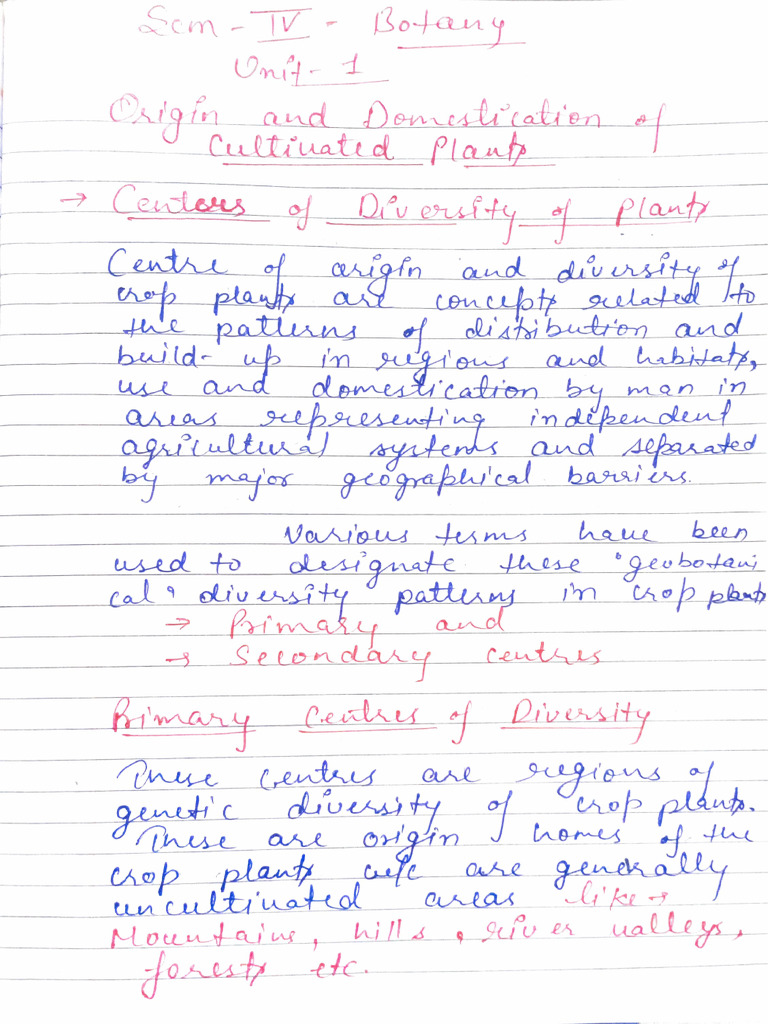 Sem - IV - Botany
Unit - 1
Origin and Domestication of
Cultivated Plants
→ Centers of Diversity of Plants
Centre of origin and diversity of
crop plants are concepts related to
the patterns of distribution and
build-up in regions and habitats,
use and domestication by man in
areas representing independent
agricultural systems and separated
by major geographical barriers.
Various terms have been
used to designate these 'geobotani
cal' diversity patterns in crop plants
→ Primary and
→ Secondary centres
Primary Centres of Diversity
These centres are regions of
genetic diversity of crop plants.
These are origin homes of the
crop plants w/c are generally
uncultivated areas like →
Mountains, hills, river valleys,
forests etc.